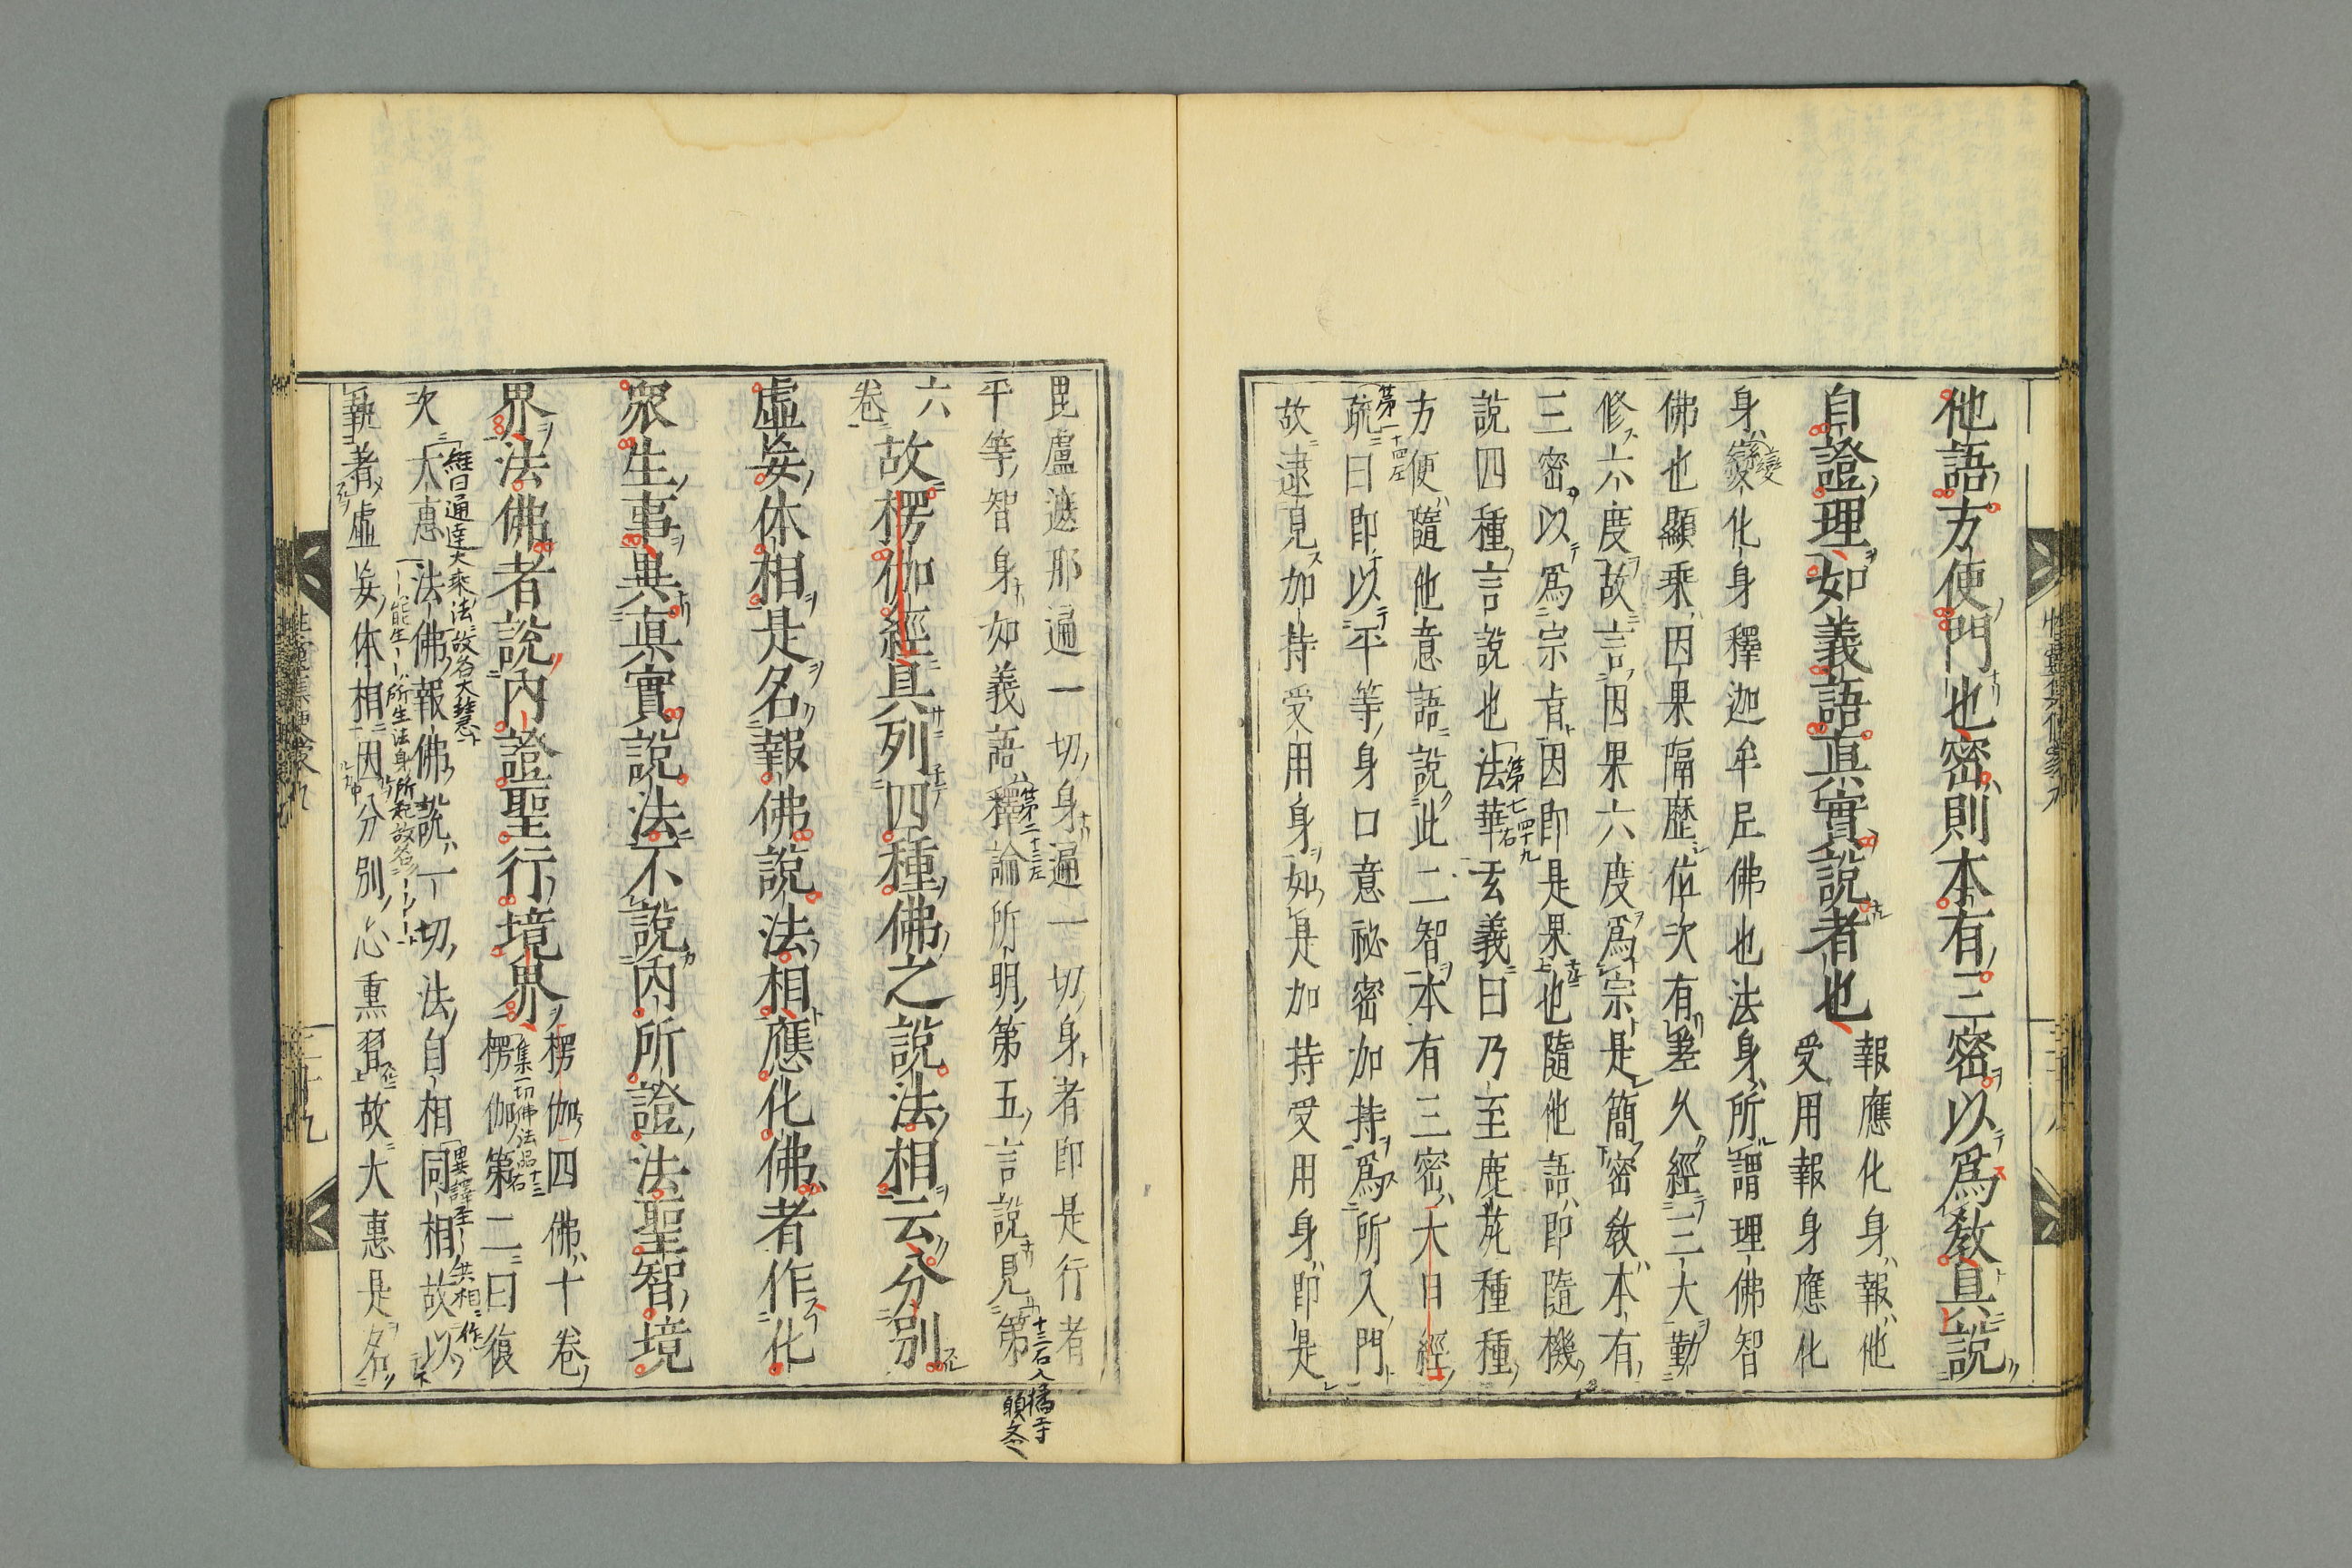 他語方便門也密則本有三密以爲教具說
自證理如義語真實說者也
報應化身報他
受用報身應化
身變化身釋迦牟尼佛也法身所謂理佛智
佛也顯乘因果隔歷位次有差久經三大勤
修六度故言因果六度爲宗是簡密教本有
三密以爲宗旨因即是果也隨他語即隨機
說四種言說也法華玄義曰乃至鹿苑種種
方便隨他意語說此二智本有三密大日經
疏曰即以平等身口意祕密加持爲所入門
故逮見加持受用身如是加持受用身即是
毘盧遮那遍一切身遍一切身者即是行者
平等智身如義語釋論所明第五言說見第
六
卷
故楞伽經具列四種佛之說法相云分別
虛妄体相是名報佛說法相應化佛者作化
衆生事異真實說法不說内所證法聖智境
界法佛者說内證聖行境界
楞伽四佛十卷
楞伽第二曰復
次大惠法佛報佛說一切法自相同相故以
執著虛妄体相因分別心熏習故大惠是名